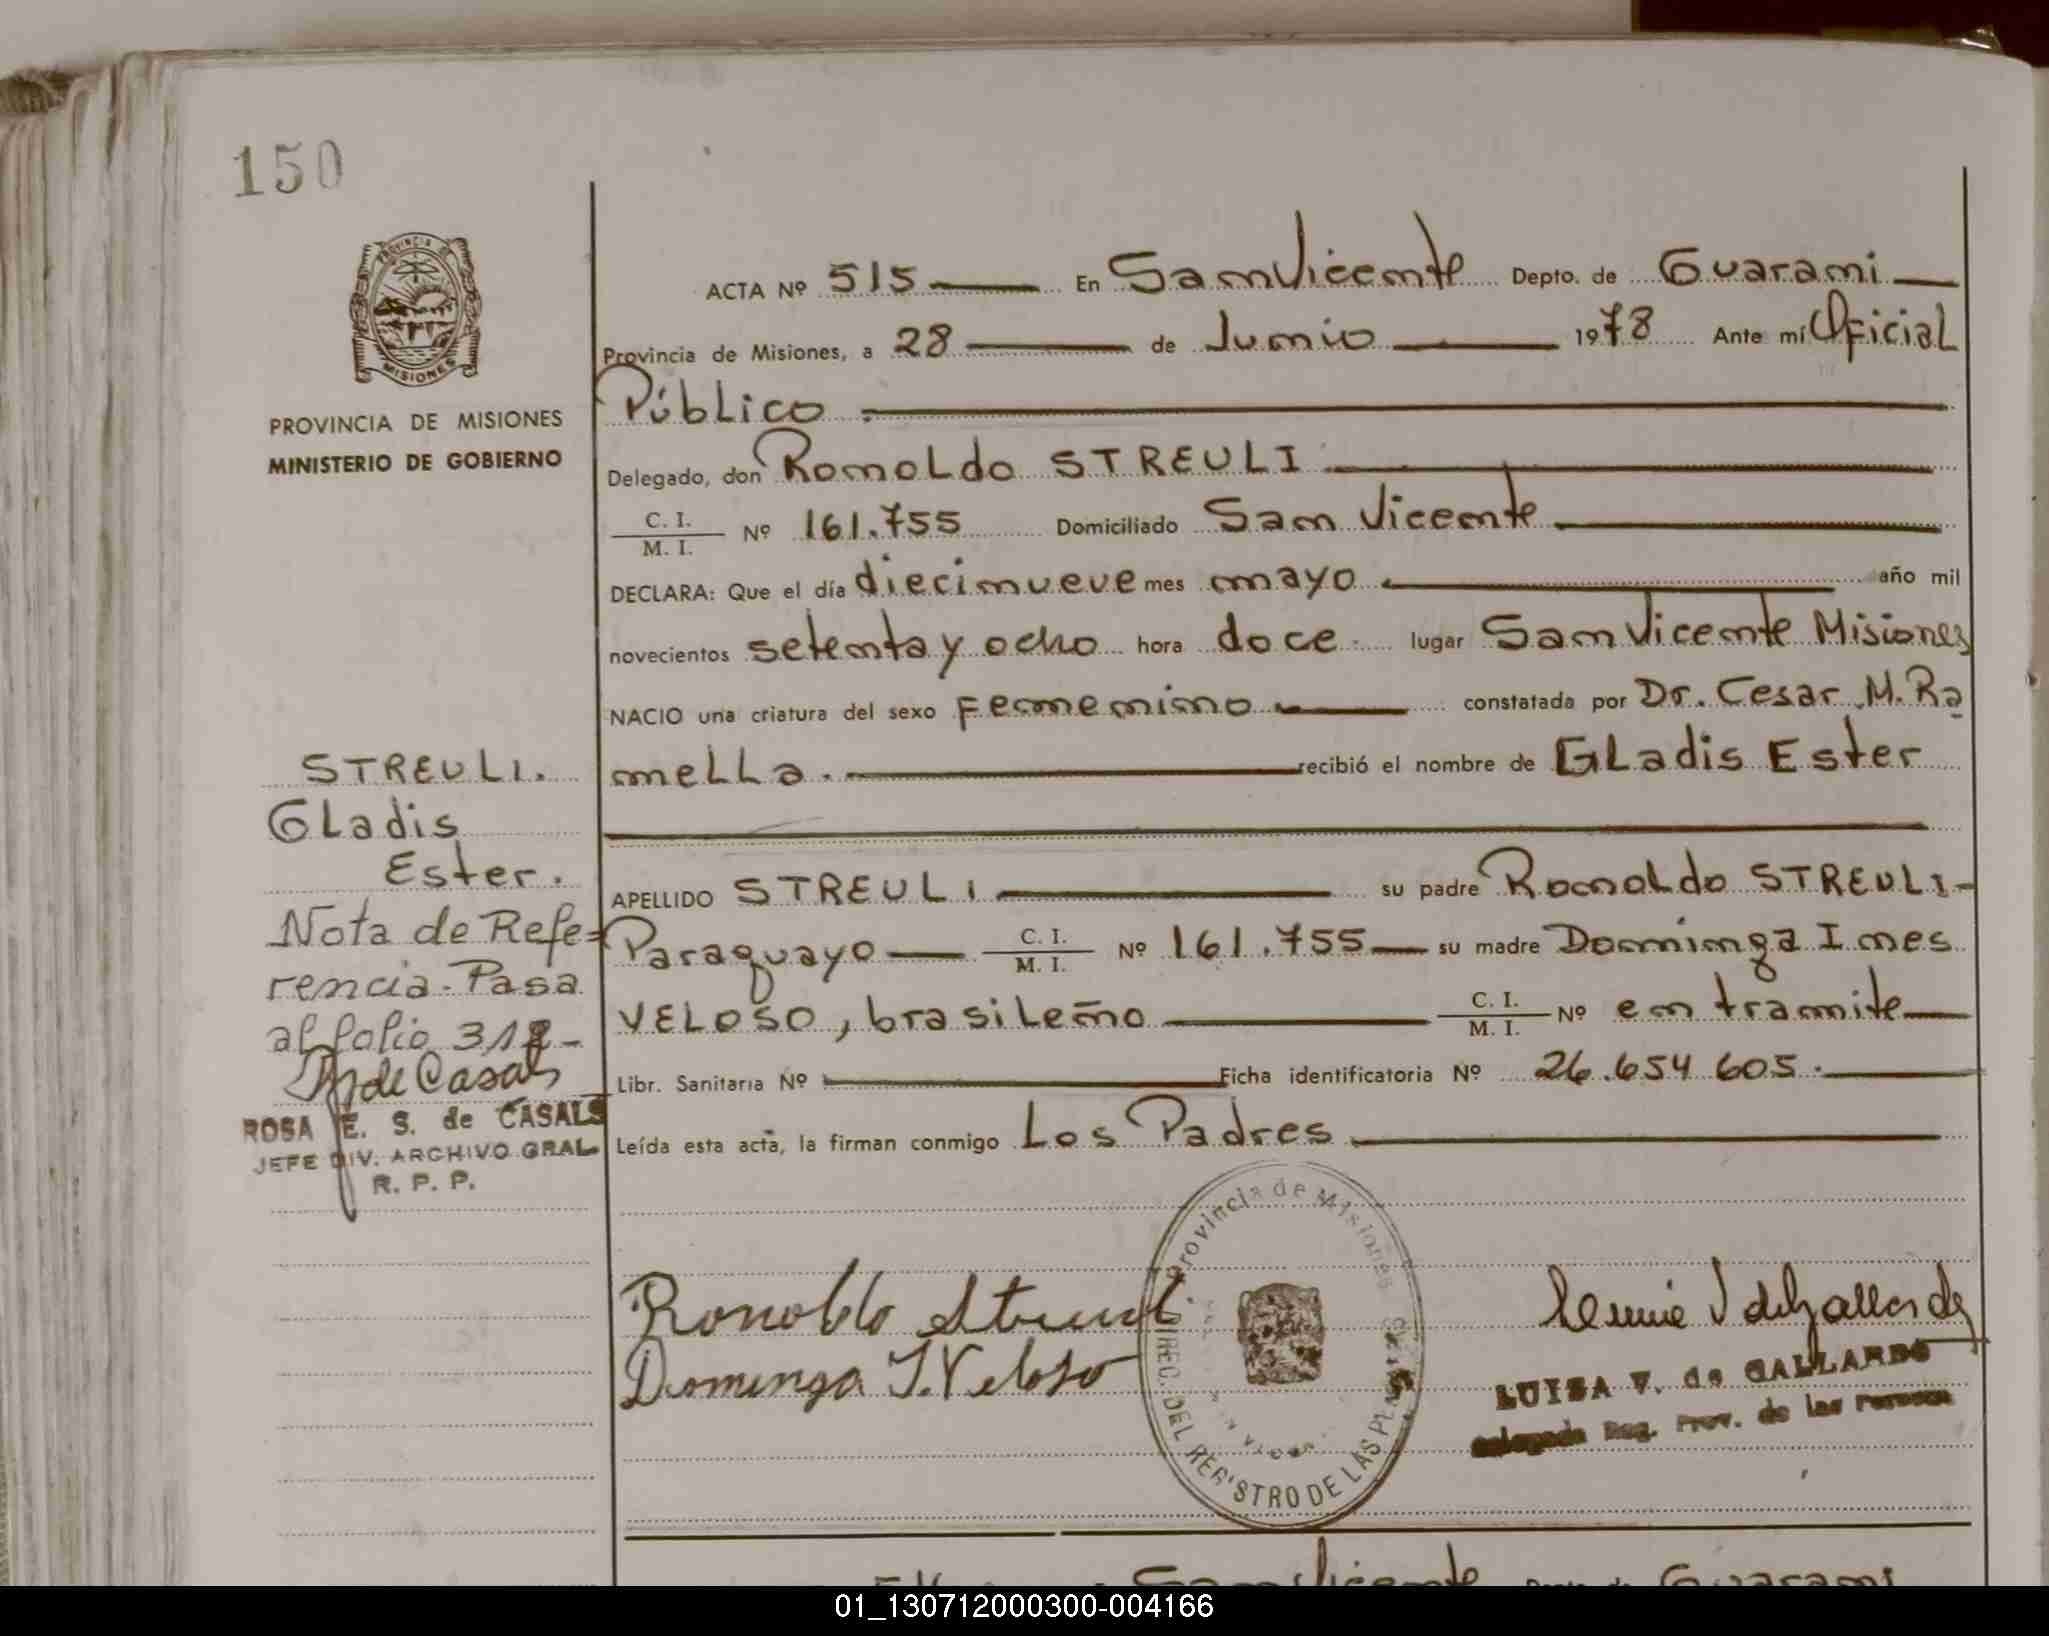 150
PROVINCIA DE MISIONES
MINISTERIO DE GOBIERNO
ACTA Nº 515 En San Vicente Depto. de Guarani
Provincia de Misiones, a 28 de Junio 1978 Ante mí Oficial
Público.
Delegado, don Ronoldo STREULI
C. I. / M. I. Nº 161.755 Domiciliado San Vicente
DECLARA: Que el día diecinueve mes mayo año mil
novecientos setenta y ocho hora doce. lugar San Vicente Misiones
NACIO una criatura del sexo Femenino constatada por Dr. Cesar M. Ra
mella. recibió el nombre de GLadis Ester
APELLIDO STREULI su padre Ronoldo STREULI-
Paraguayo C. I. / M. I. Nº 161.755 su madre Dominga Ines
VELOSO, brasileño C. I. / M. I. Nº en tramite
Libr. Sanitaria Nº Ficha identificatoria Nº 26.654 605.
Leída esta acta, la firman conmigo Los Padres
STREULI.
GLadis
Ester.
Nota de Refe=
rencia-Pasa
al folio
de Casals
ROSA E. S. de CASALS
JEFE DIV. ARCHIVO GRAL
R. P. P.
Ronoldo Streuli
Dominga I. Veloso
Provincia de Misiones
DIREC. DEL REGISTRO DE LAS
LUISA V. de GALLARDO
Delegada Reg. Prov. de las Personas
San Vicente Guarani
01_130712000300-004166